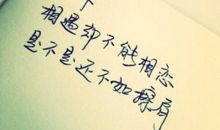 相遇却不能相恋
是不是还不如擦肩